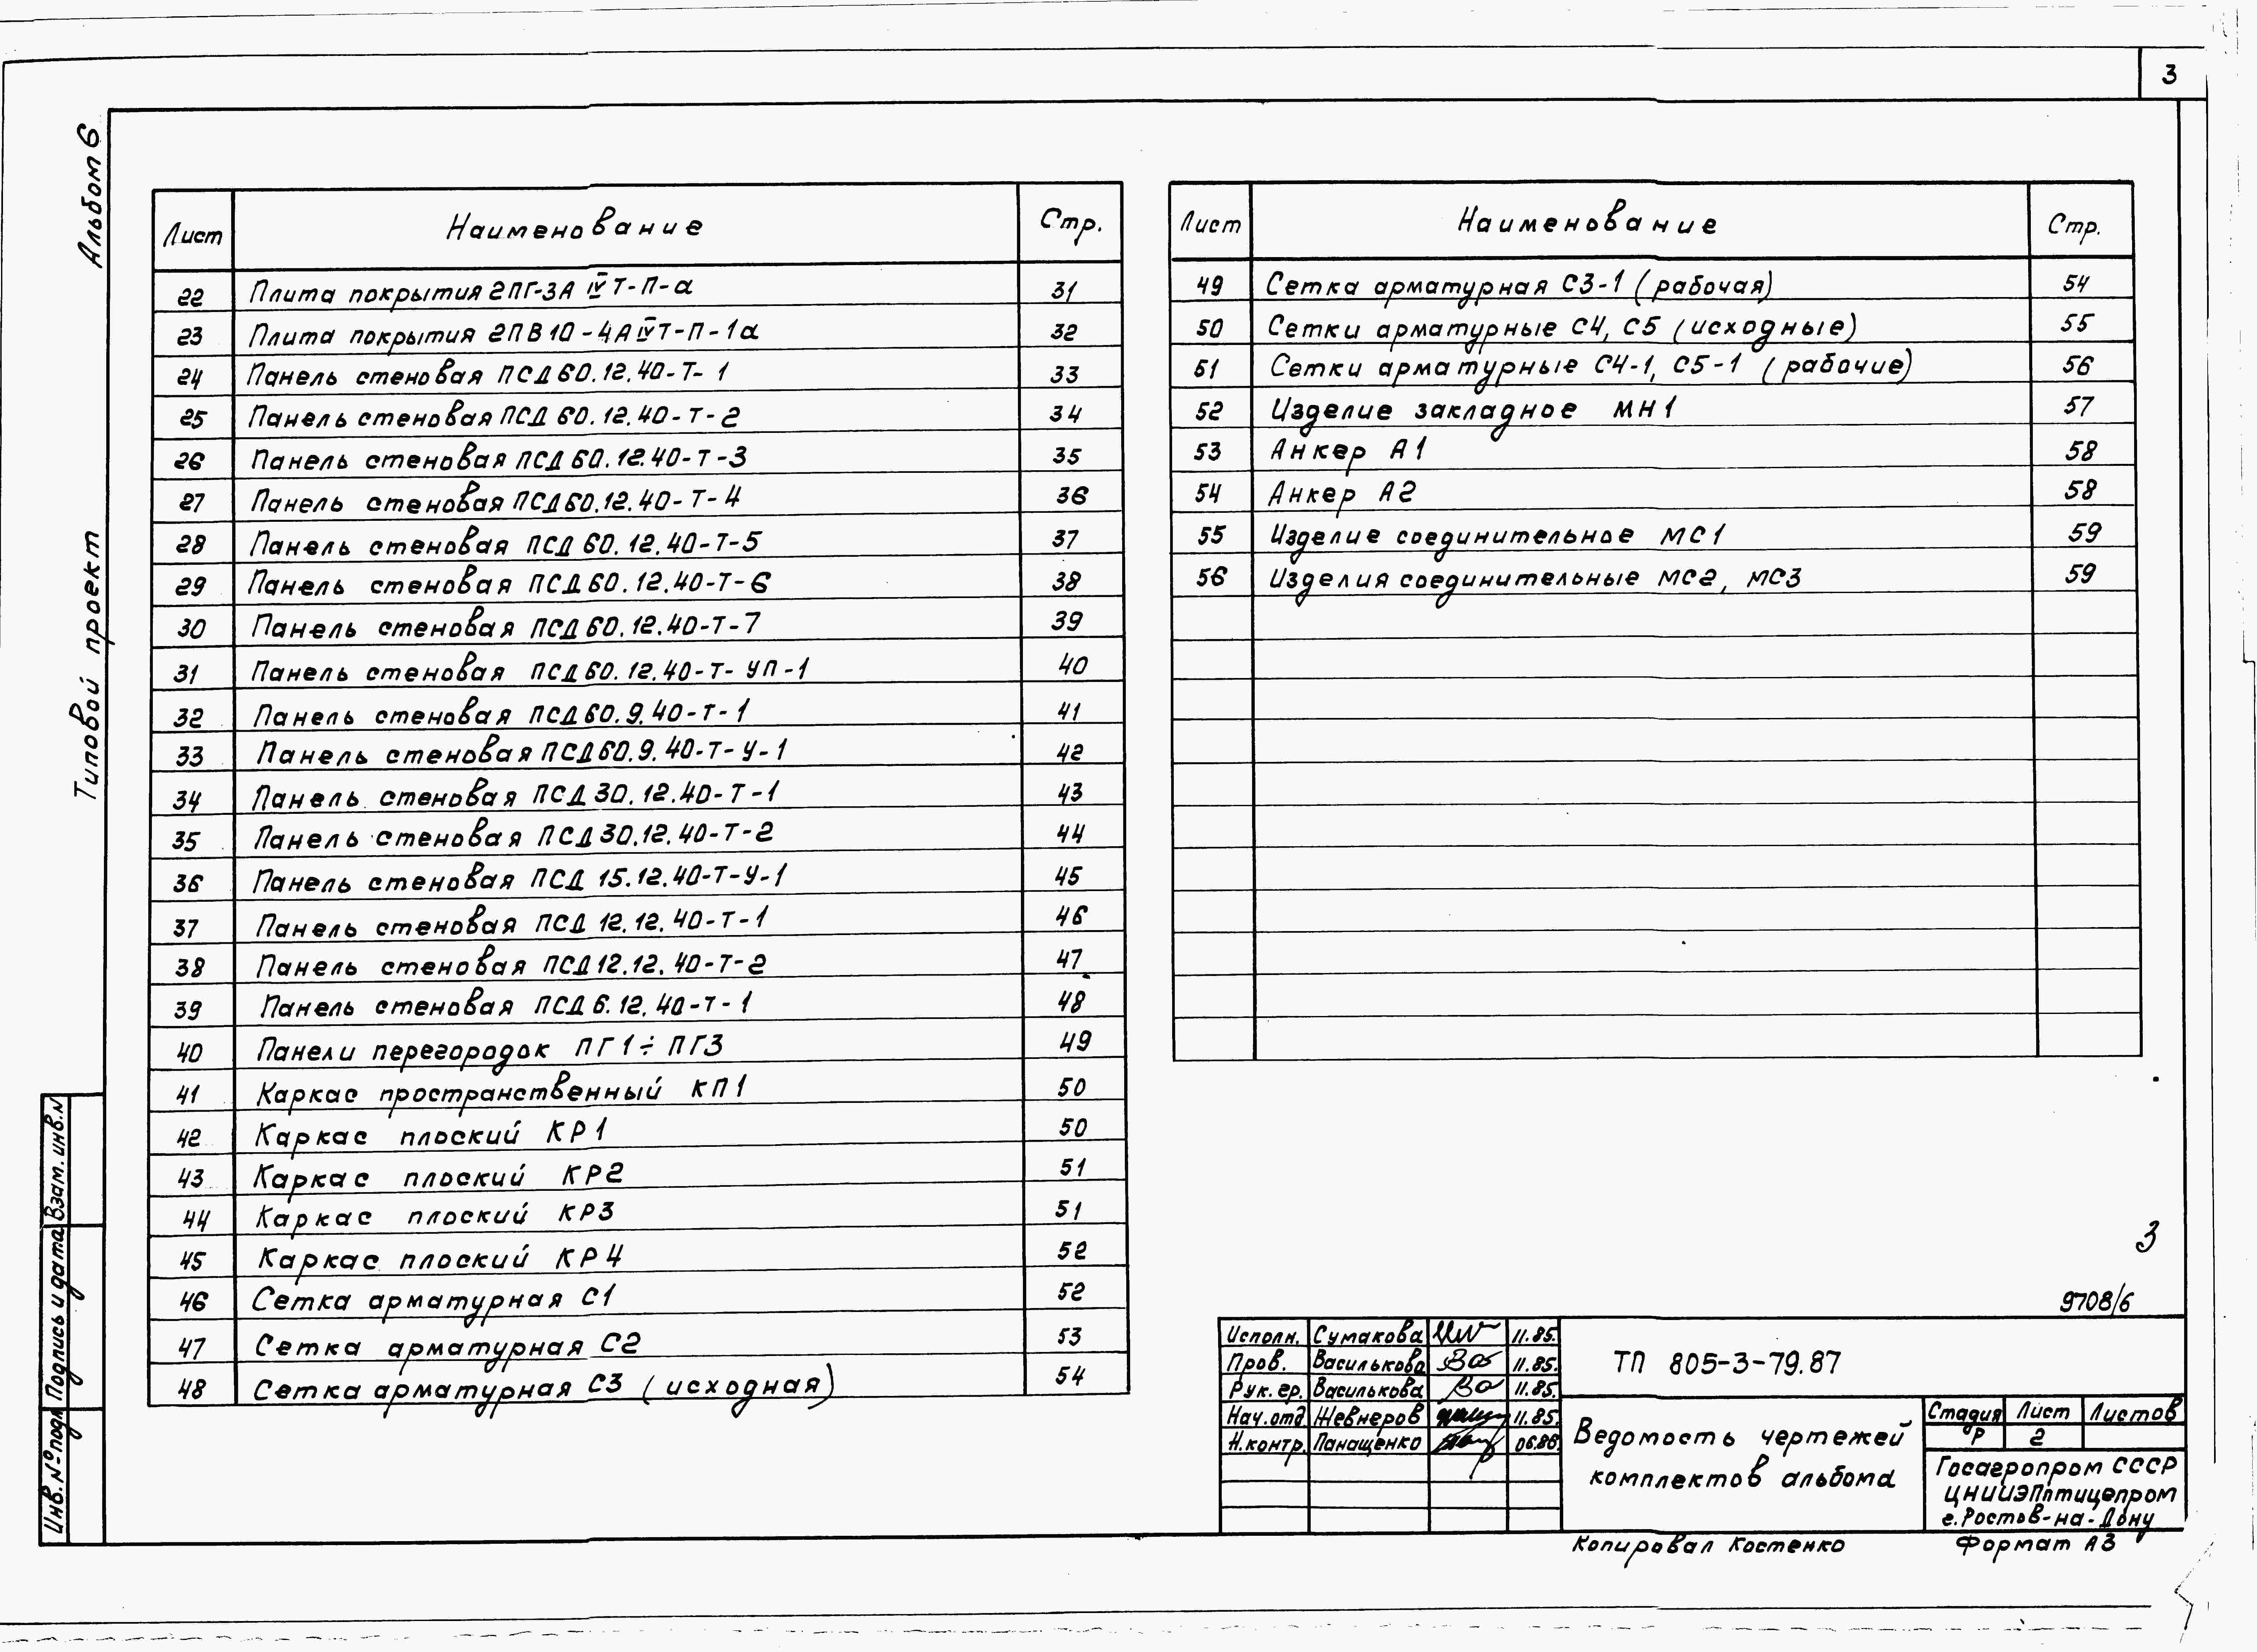 3
Альбом 6
Типовой проект
Лист Наименование Стр.
22 Плита покрытия 2ПГ-3А IV Т-П-а 31
23 Плита покрытия 2ПВ10-4А IV Т-П-1а 32
24 Панель стеновая ПСД 60.12.40-Т-1 33
25 Панель стеновая ПСД 60.12.40-Т-2 34
26 Панель стеновая ПСД 60.12.40-Т-3 35
27 Панель стеновая ПСД 60.12.40-Т-4 36
28 Панель стеновая ПСД 60.12.40-Т-5 37
29 Панель стеновая ПСД 60.12.40-Т-6 38
30 Панель стеновая ПСД 60.12.40-Т-7 39
31 Панель стеновая ПСД 60.12.40-Т-УП-1 40
32 Панель стеновая ПСД 60.9.40-Т-1 41
33 Панель стеновая ПСД 60.9.40-Т-У-1 42
34 Панель стеновая ПСД 30.12.40-Т-1 43
35 Панель стеновая ПСД 30.12.40-Т-2 44
36 Панель стеновая ПСД 15.12.40-Т-У-1 45
37 Панель стеновая ПСД 12.12.40-Т-1 46
38 Панель стеновая ПСД 12.12.40-Т-2 47
39 Панель стеновая ПСД 6.12.40-Т-1 48
40 Панели перегородок ПГ1÷ПГ3 49
41 Каркас пространственный КП1 50
42 Каркас плоский КР1 50
43 Каркас плоский КР2 51
44 Каркас плоский КР3 51
45 Каркас плоский КР4 52
46 Сетка арматурная С1 52
47 Сетка арматурная С2 53
48 Сетка арматурная С3 (исходная) 54
Лист Наименование Стр.
49 Сетка арматурная С3-1 (рабочая) 54
50 Сетки арматурные С4, С5 (исходные) 55
51 Сетки арматурные С4-1, С5-1 (рабочие) 56
52 Изделие закладное МН1 57
53 Анкер А1 58
54 Анкер А2 58
55 Изделие соединительное МС1 59
56 Изделия соединительные МС2, МС3 59
3
9708/6
Исполн. Сумакова 11.85.
Пров. Василькова 11.85.
Рук. гр. Василькова 11.85.
Нач. отд. Шевнеров 11.85.
Н. контр. Панащенко 06.86.
ТП 805-3-79.87
Ведомость чертежей
комплектов альбома
Стадия Лист Листов
Р 2
Госагропром СССР
ЦНИИЭПптицепром
г. Ростов-на-Дону
Копировал Костенко Формат А3
Взам. инв. N
Подпись и дата
Инв. № подл